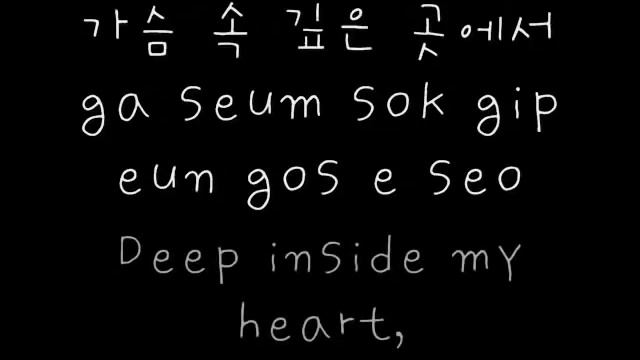 가슴 속 깊은 곳에서
ga seum sok gip
eun gos e seo
Deep inside my
heart,